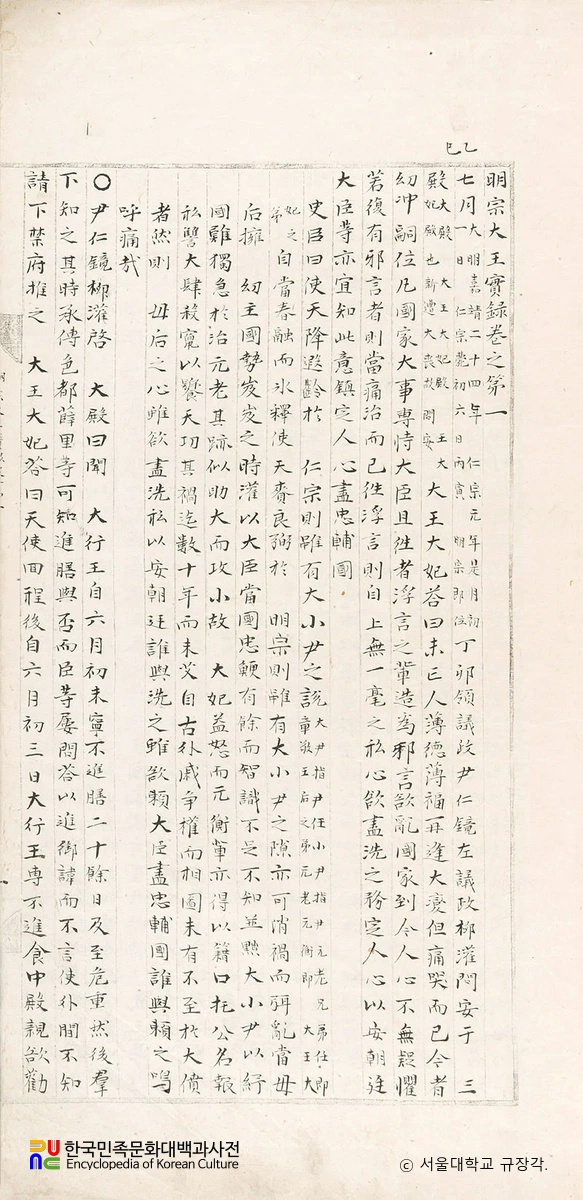 乙巳
明宗大王實錄卷之第一
七月一日大明嘉靖二十四年仁宗元年是月初仁宗薨初六日丙寅明宗即位丁卯領議政尹仁鏡左議政柳灌問安于三
殿大殿大王大妃殿王大妃殿也新遭大喪故問安大王大妃答曰未亡人薄德薄福再逢大變但痛哭而已今者
幼冲嗣位凡國家大事專恃大臣且徃者浮言之輩造為邪言欲亂國家到今人心不無疑懼
若復有邪言者則當痛治而已徃浮言則自上無一毫之私心欲盡洗之務定人心以安朝廷
大臣等亦宜知此意鎮定人心盡忠輔國
史臣曰使天降遐齡於 仁宗則雖有大小尹之說大尹指尹任小尹指尹元老兄弟任即章敬王后之弟元老元衡即大王大
妃之弟自當春融而氷釋使天賚良弼於 明宗則雖有大小尹之隙亦可消禍而弭亂當母
后擁 幼主國勢岌岌之時灌以大臣當國忠鯁有餘而智識不足不知並黜大小尹以紓
國難獨急於治元老其跡似助大而攻小故 大妃益怒而元衡軰亦得以籍口托公名報
私讐大肆殺竄以饕天功其禍迄數十年而未艾自古外戚爭權而相圖未有不至於大僨
者然則 母后之心雖欲盡洗私以安朝廷誰與洗之雖欲賴大臣盡忠輔國誰與賴之嗚
呼痛㦲
○尹仁鏡柳灌啓 大殿曰聞 大行王自六月初未寧不進膳二十餘日及至危重然後羣
下知之其時承傳色都薛里等可知進膳與否而臣等屢問答以進御諱而不言使外間不知
請下禁府推之 大王大妃答曰天使回程後自六月初三日大行王專不進食中殿親欲勸
한국민족문화대백과사전
Encyclopedia of Korean Culture
ⓒ 서울대학교 규장각.